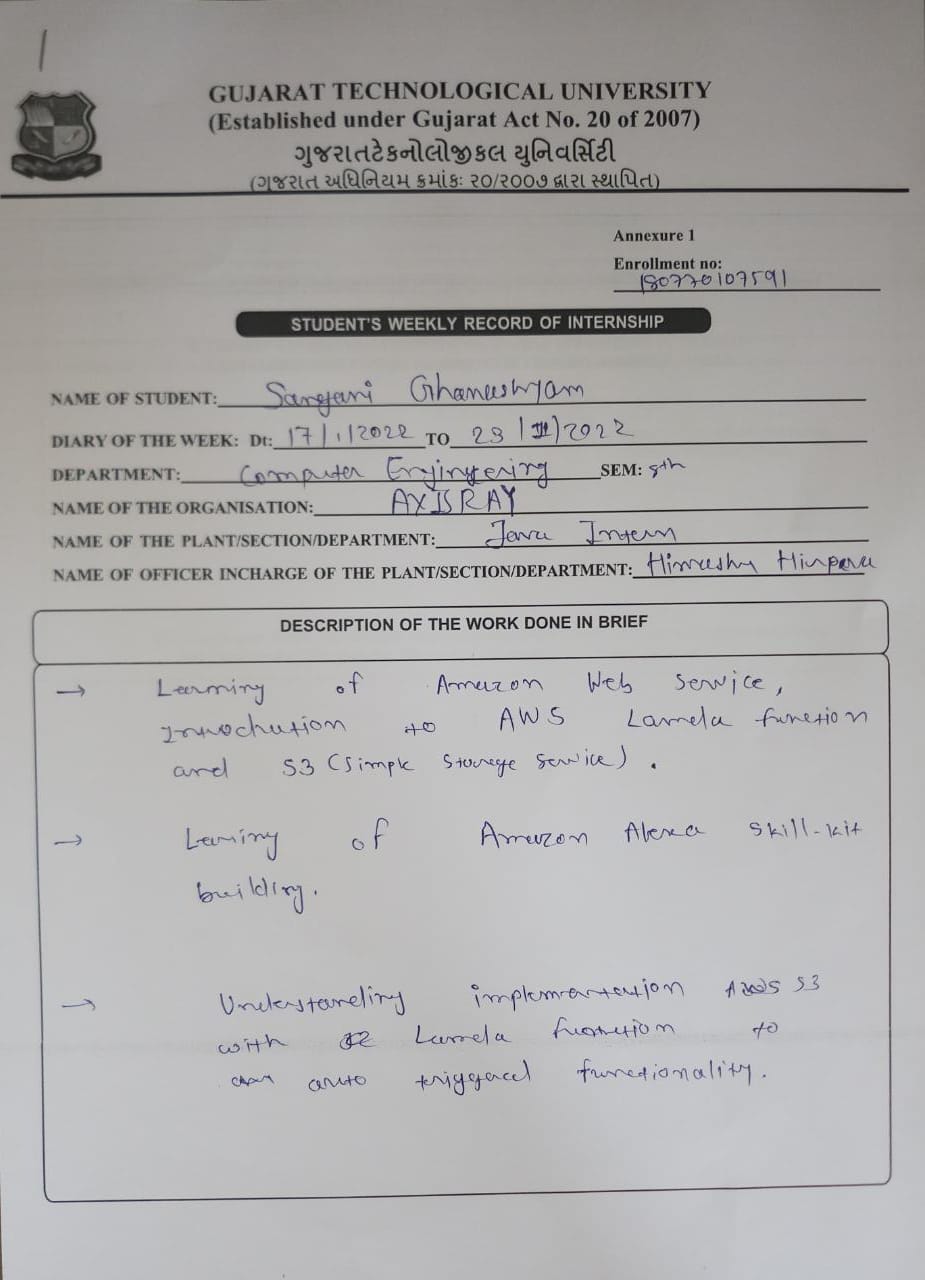 GUJARAT TECHNOLOGICAL UNIVERSITY
(Established under Gujarat Act No. 20 of 2007)
ગુજરાતટેકનોલોજીકલ યુનિવર્સિટી
(ગુજરાત અધિનિયમ ક્રમાંકઃ ૨૦/૨૦૦૭ દ્વારા સ્થાપિત)
Annexure 1
Enrollment no:
180770107591
STUDENT'S WEEKLY RECORD OF INTERNSHIP
NAME OF STUDENT: Sangani Ghanushyam
DIARY OF THE WEEK: Dt: 17/1/2022 TO 23/1/2022
DEPARTMENT: Computer Enjinyering SEM: 8th
NAME OF THE ORGANISATION: AXISRAY
NAME OF THE PLANT/SECTION/DEPARTMENT: Java Intern
NAME OF OFFICER INCHARGE OF THE PLANT/SECTION/DEPARTMENT: Himashu Hirpara
DESCRIPTION OF THE WORK DONE IN BRIEF
→ Learning of Amazon Web Service,
to AWS Lamda function
and S3 (Simple Storage Service).
→ Learning of Amazon Alexa Skill-kit
building.
→ Understanding AWS S3
with Lamda function to
auto functionality.